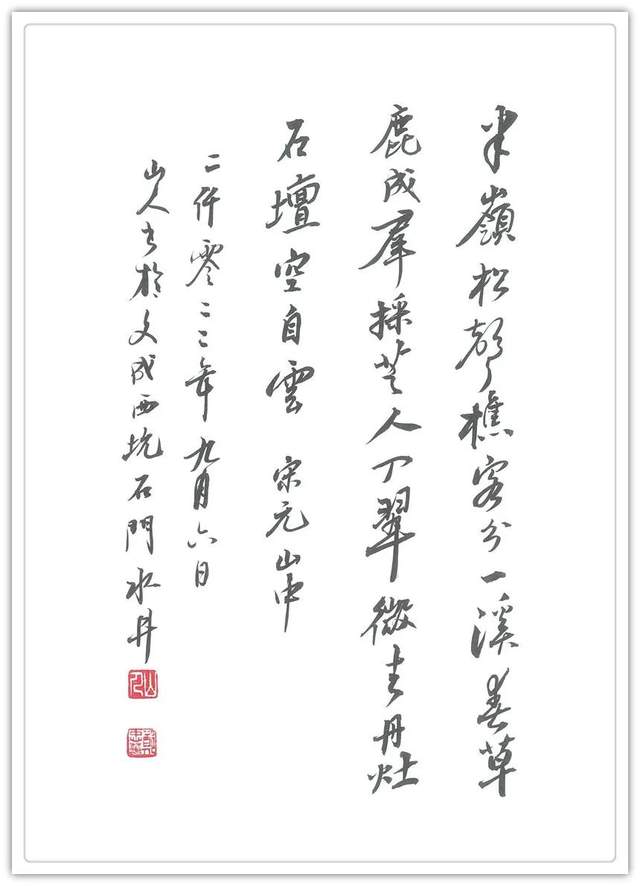 半嶺松聲樵客分一溪春草
鹿成羣採芝人下翠微去丹灶
石壇空自雲 宋元山中
二仟零二二年九月六日
山人書於文成西坑石門水井
山人